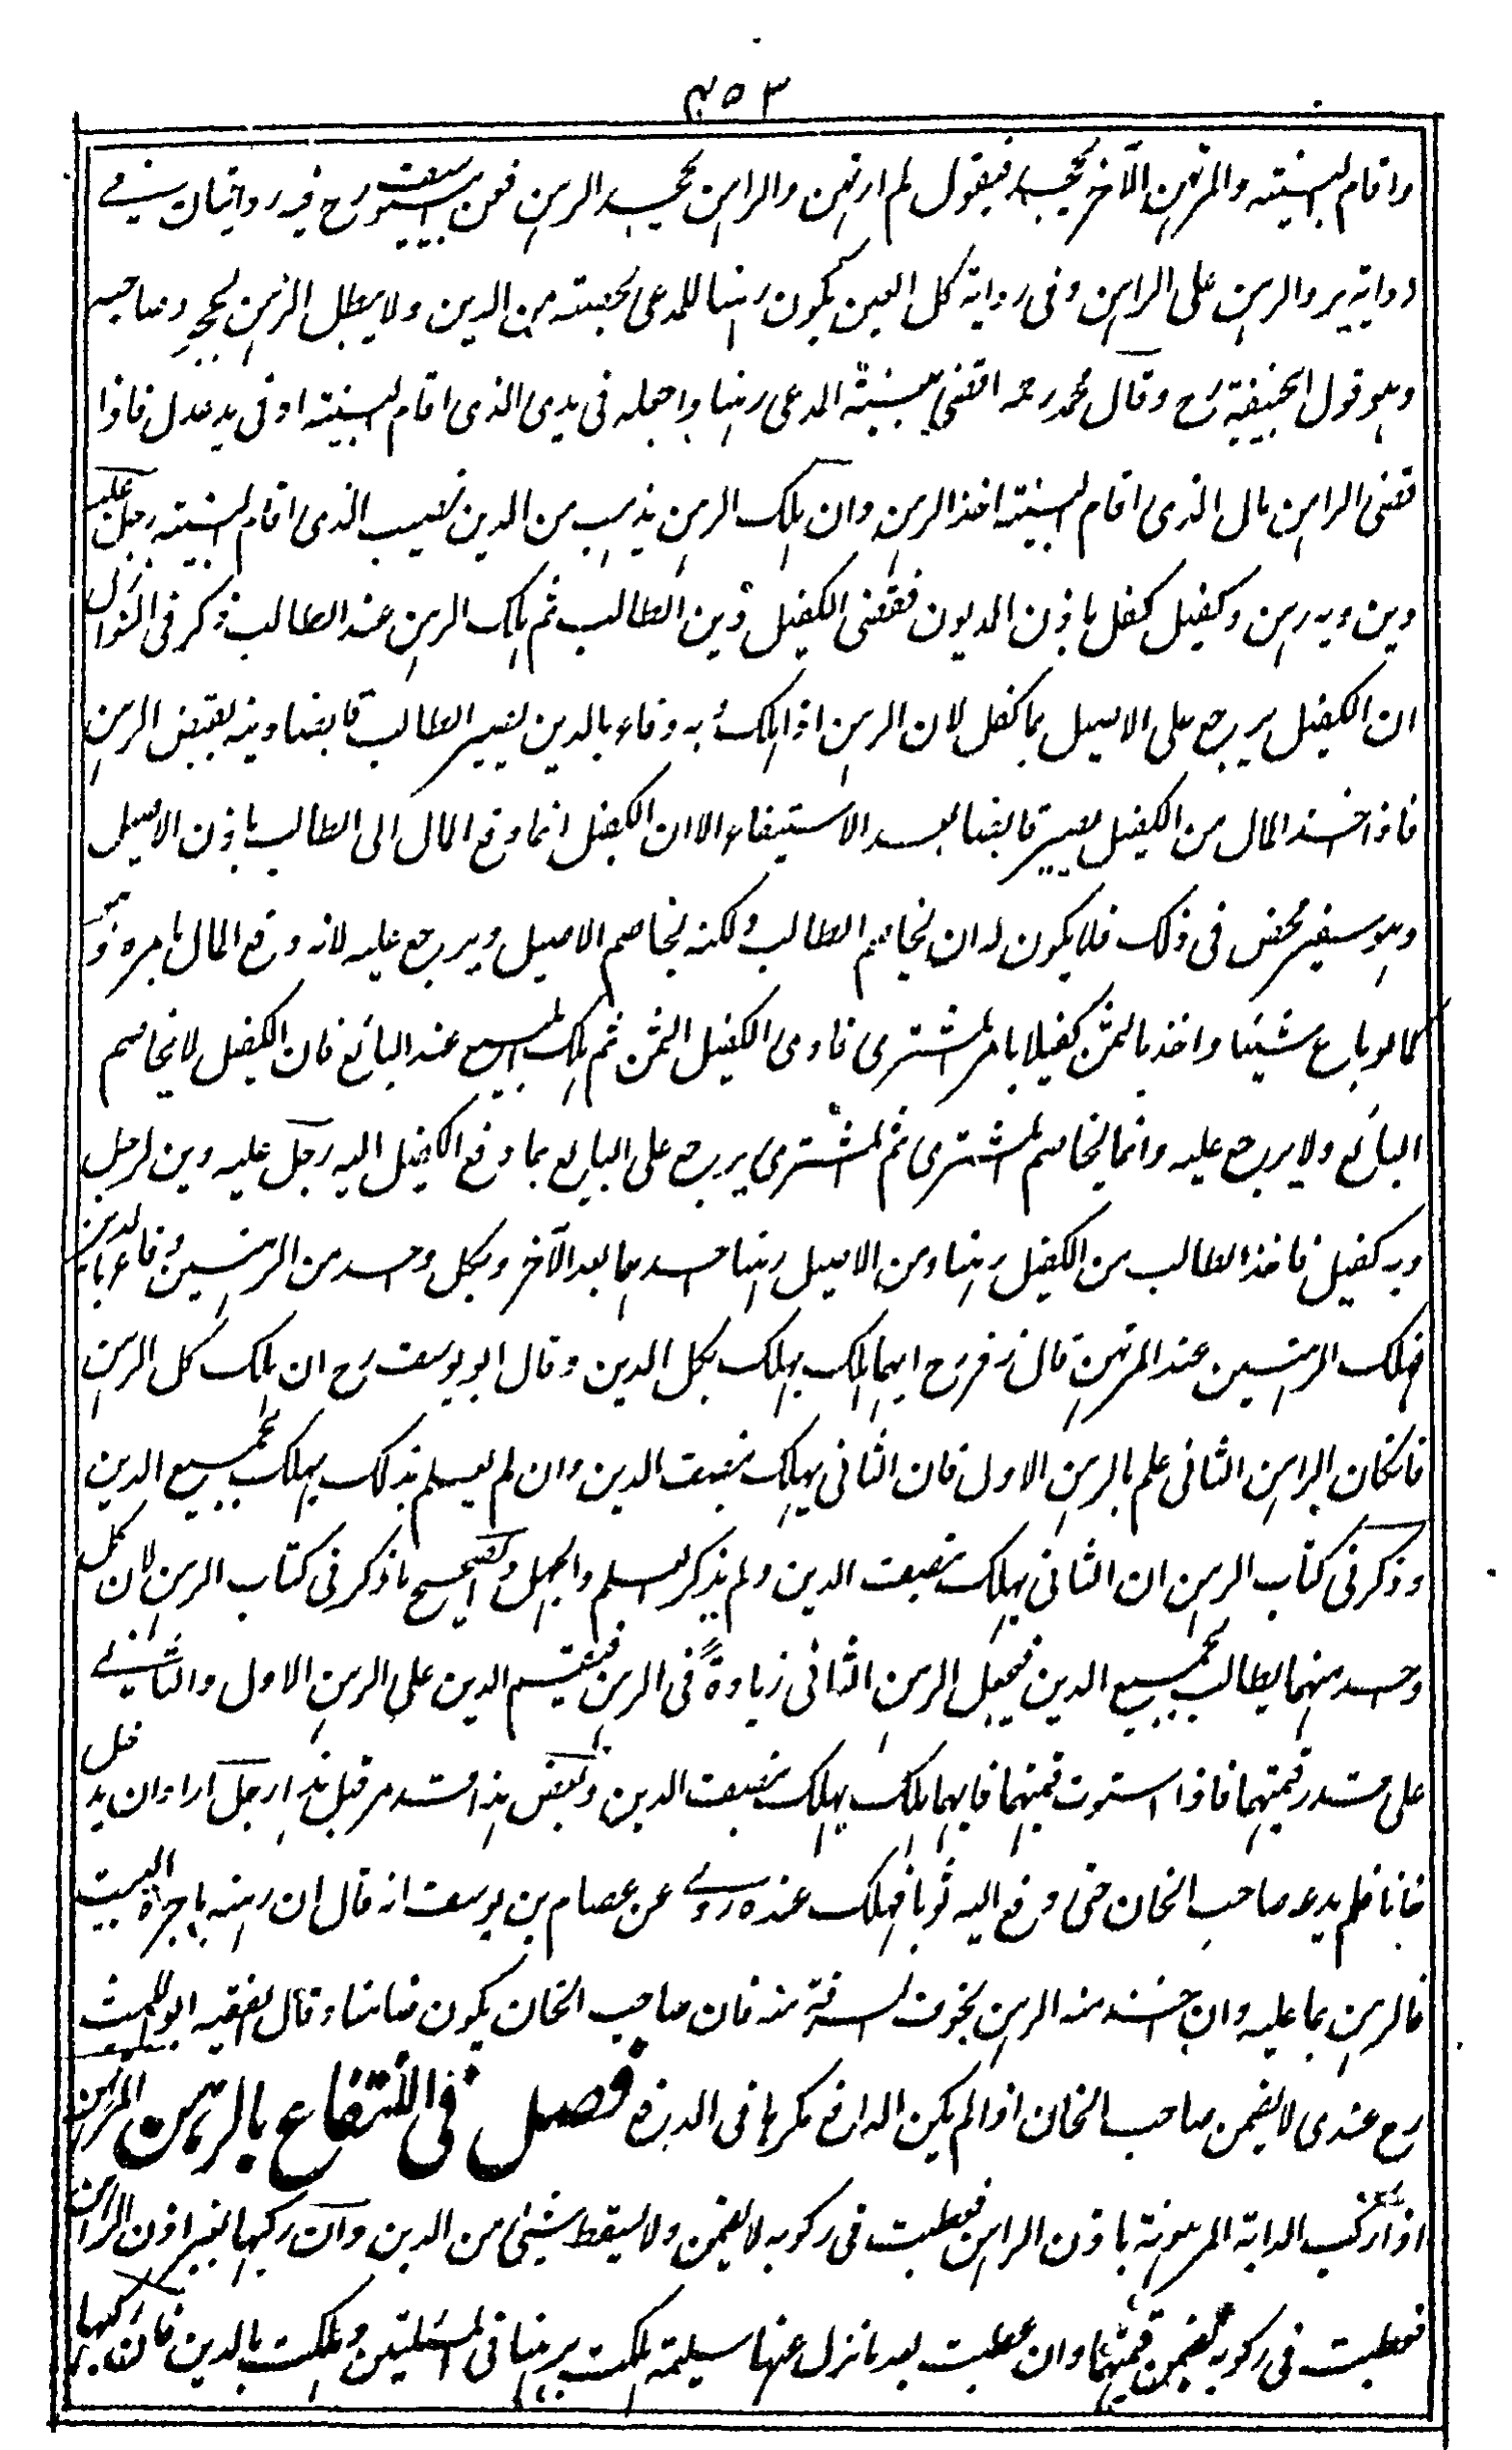 ٤٥٣
واقام البينة والمرتهن الآخر يجحد فيقول لم ارتهن والراهن يجحد الرهن فعن ابي يوسف رح فيه روايتان في
رواية يرد الرهن على الراهن وفى رواية كل العين يكون رهنا للمدعى بحصته من الدين ولا يبطل الرهن بجحود صاحبه
وهو قول ابى حنيفة رح وقال محمد رحمه اقضى ببينة المدعى رهنا واجعله فى يدى الذى اقام البينة او فى يد عدل فاذا
قضى الراهن مال الذى اقام البينة اخذ الرهن وان هلك الرهن يذهب من الدين نصيب الذى اقام البينة رجل عليه
دين وبه رهن وكفيل كفل باذن المديون فقضى الكفيل دين الطالب ثم هلك الرهن عند الطالب ذكر فى النوازل
ان الكفيل يرجع على الاصيل بما كفل لان الرهن اذا هلك وبه وفاء بالدين يصير الطالب قابضا دينه بقبض الرهن
فاذا اخذ المال من الكفيل يصير قابضا بعد الاستيفاء الا ان الكفيل انما دفع المال الى الطالب باذن الاصيل
وهو سفير محض فى ذلك فلا يكون له ان يخاصم الطالب ولكنه يخاصم الاصيل ويرجع عليه لانه دفع المال بامره
كما لو باع شيئا واخذ بالثمن كفيلا بامر المشترى فادى الكفيل الثمن ثم هلك المبيع عند البائع فان الكفيل لا يخاصم
البائع ولا يرجع عليه وانما يخاصم المشترى ثم المشترى يرجع على البايع بما دفع الكفيل اليه رجل عليه دين لرجل
وبه كفيل فاخذ الطالب من الكفيل رهنا ومن الاصيل رهنا احدهما بعد الآخر وبكل واحد من الرهنين وفاء بالدين
فهلك الرهنين عند المرتهن قال زفر رح ايهما هلك يهلك بكل الدين وقال ابو يوسف رح ان هلك كل الرهن
فانكان الراهن الثانى علم بالرهن الاول فان الثانى يهلك بنصف الدين وان لم يعلم بذلك يهلك بجميع الدين
وذكر فى كتاب الرهن ان الثانى يهلك بنصف الدين ولم يذكر العلم والجهل والصحيح ما ذكر فى كتاب الرهن لان كل
واحد منهما يطالب بجميع الدين فيجعل الرهن الثانى زيادة فى الرهن فيقسم الدين على الرهن الاول والثانى
على قدر قيمتهما فاذا استوت قيمتهما فايهما هلك يهلك بنصف الدين وبعض هذا قد مر قبل هذا رجل اراد ان يدخل
خانا فلم يدعه صاحب الخان حتى دفع اليه ثوبا فهلك عنده روى عن عصام بن يوسف انه قال ان رهنه باجرة البيت
فالرهن بما عليه وان اخذ منه الرهن لخوف السرقة منه فان صاحب الخان يكون ضامنا وقال الفقيه ابو الليث
رح عندى لا يضمن صاحب الخان اذا لم يكن الدافع مكرها فى الدفع فصل فى الانتفاع بالرهن المرتهن
اذا ركب الدابة المرهونة باذن الراهن فعطبت فى ركوبه لا يضمن ولا يسقط شيئ من الدين وان ركبها بغير اذن الراهن
فعطبت فى ركوبه يضمن قيمتها وان عطبت بعد ما نزل عنها سليمة هلكت برهنها فى المسئلتين وهلكت بالدين فان ركبها